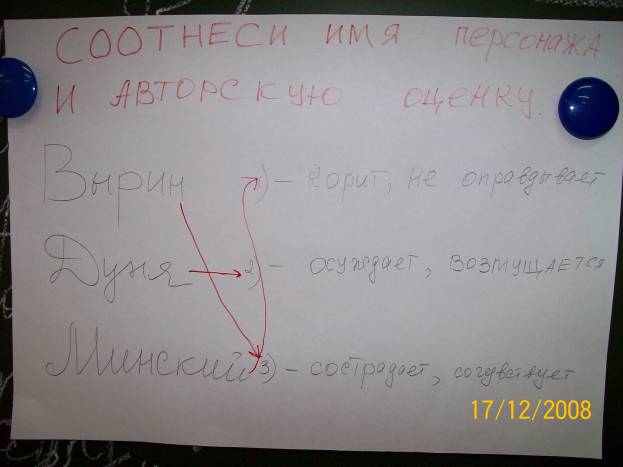 СООТНЕСИ ИМЯ ПЕРСОНАЖА
И АВТОРСКУЮ ОЦЕНКУ.
Вырин 1) – корит, не оправдывает
Дуня 2) – осуждает, ВОЗМУЩАЕТСЯ
Минский 3) – сострадает, сочувствует
17/12/2008